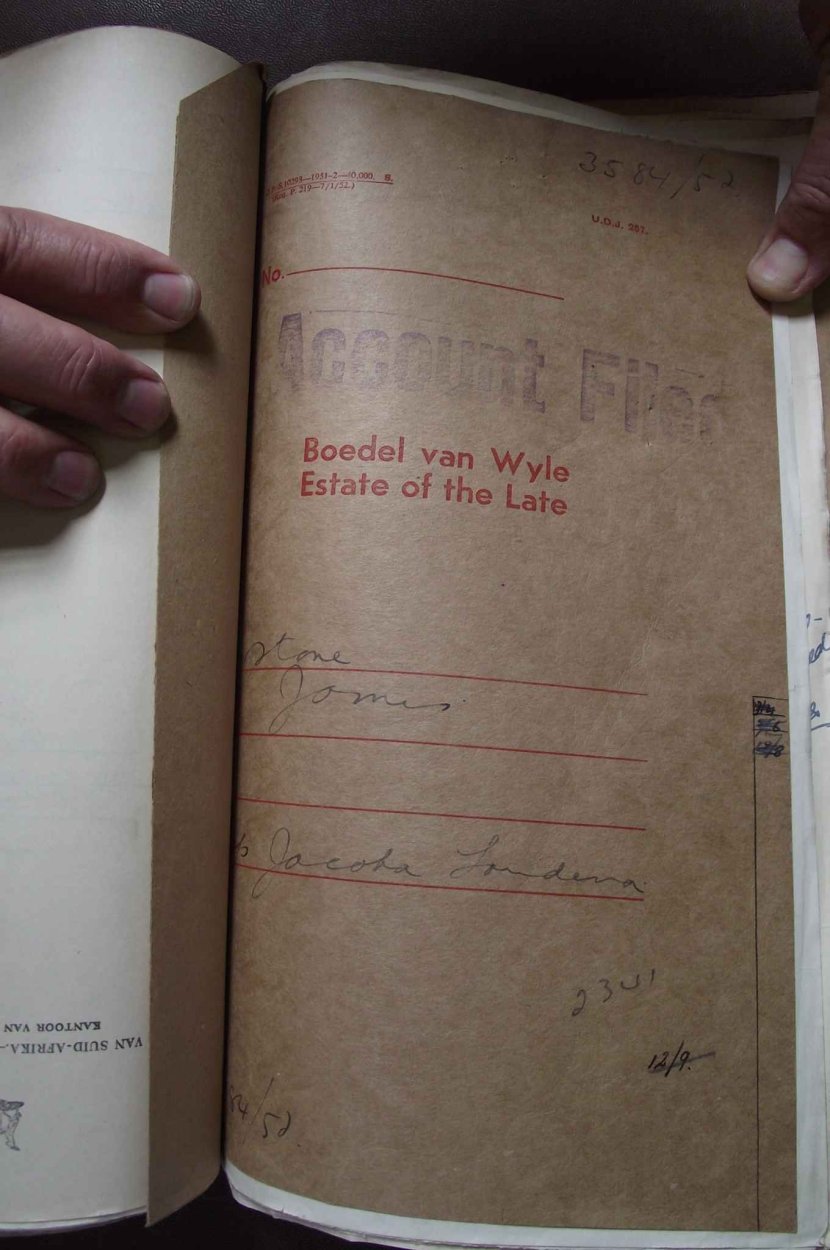 3584/52
S.10293—1951-2—10,000. S.
(Req. P. 219—7/1/52.)
U.D.J. 287.
No.
Account Filed
Boedel van Wyle
Estate of the Late
stone
James
Jacoba
2341
12/9.
84/52.
KANTOOR VAN
VAN SUID-AFRIKA.—